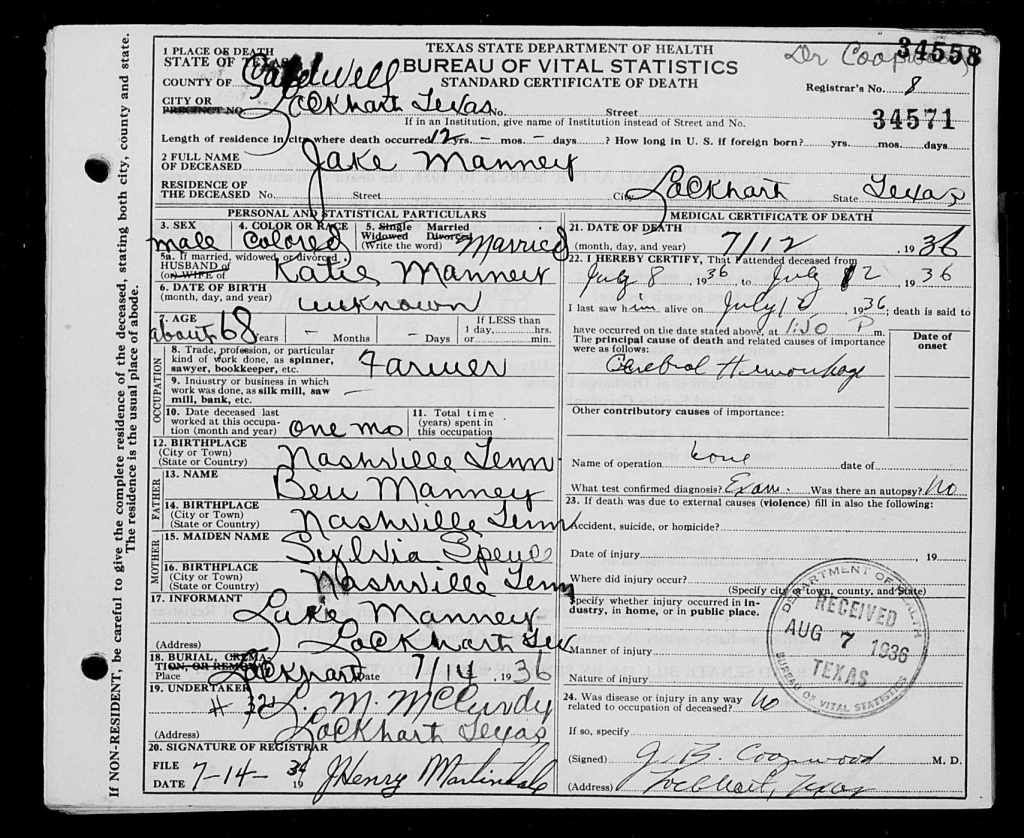 TEXAS STATE DEPARTMENT OF HEALTH
BUREAU OF VITAL STATISTICS
STANDARD CERTIFICATE OF DEATH
34558
Registrar's No. 8
34571
1 PLACE OF DEATH
STATE OF TEXAS
COUNTY OF Caldwell
CITY OR
PRECINCT NO. Lockhart Texas No. Street
If in an Institution, give name of Institution instead of Street and No.
Length of residence in city where death occurred 12 yrs. - mos. - days ? How long in U. S. if foreign born? yrs. mos. days
2 FULL NAME
OF DECEASED Jake Manney
RESIDENCE OF
THE DECEASED No. Street City Lockhart State Texas
PERSONAL AND STATISTICAL PARTICULARS
3. SEX
male
4. COLOR OR RACE
Colored
5. Single Married
Widowed Divorced
(Write the word) Married
5a. If married, widowed, or divorced
HUSBAND of
(or) WIFE of Katie Manney
6. DATE OF BIRTH
(month, day, and year) unknown
7. AGE
about 68 Years - Months - Days
If LESS than
1 day, hrs.
or min.
OCCUPATION
8. Trade, profession, or particular
kind of work done, as spinner,
sawyer, bookkeeper, etc. Farmer
9. Industry or business in which
work was done, as silk mill, saw
mill, bank, etc. -
10. Date deceased last
worked at this occupa-
tion (month and year) one mo
11. Total time
(years) spent in
this occupation
12. BIRTHPLACE
(City or Town)
(State or Country) Nashville Tenn
FATHER
13. NAME
Ben Manney
14. BIRTHPLACE
(City or Town)
(State or Country) Nashville Tenn
MOTHER
15. MAIDEN NAME
Sylvia
16. BIRTHPLACE
(City or Town)
(State or Country) Nashville Tenn
17. INFORMANT
Manney
(Address) Lockhart Tex
18. BURIAL, CREMA-
TION, OR REMOVAL
Place Lockhart Date 7/14, 1936
19. UNDERTAKER
L. M. McCurdy
(Address) Lockhart Texas
20. SIGNATURE OF REGISTRAR
FILE
DATE 7-14- 19 36 J Henry Martindale
MEDICAL CERTIFICATE OF DEATH
21. DATE OF DEATH
(month, day, and year) 7/12, 1936
22. I HEREBY CERTIFY, That I attended deceased from
July 8, 1936 to July 12, 1936
I last saw him alive on July 12, 1936; death is said to
have occurred on the date stated above, at P. m.
The principal cause of death and related causes of importance
were as follows:
Date of
onset
Cerebral Hemorrhage
Other contributory causes of importance:
Name of operation date of
What test confirmed diagnosis? Exam. Was there an autopsy? No
23. If death was due to external causes (violence) fill in also the following:
Accident, suicide, or homicide?
Date of injury , 19
Where did injury occur?
(Specify city or town, county, and State)
Specify whether injury occurred in in-
dustry, in home, or in public place.
Manner of injury
Nature of injury
24. Was disease or injury in any way
related to occupation of deceased? No
If so, specify
(Signed) J. B. Coopwood M. D.
(Address) Lockhart, Texas
DEPARTMENT OF HEALTH
RECEIVED
AUG 7 1936
TEXAS
BUREAU OF VITAL STATISTICS
If NON-RESIDENT, be careful to give the complete residence of the deceased, stating both city, county and state.
The residence is the usual place of abode.